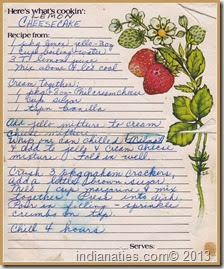 Here's what's cookin':
LEMON
CHEESECAKE
Recipe from:
1 pkg lemon jello - 3oz
1 Cup boiling water
3 T lemon juice
Mix above & let cool
Cream Together:
1 pkg 8oz Phil. cream cheese
1 Cup sugar
1 tspn Vanilla
Add jello mixture to cream
cheese mixture.
Whip one can chilled
& add to jello & cream cheese
mixture. Fold in well.
Crush 3 pkg graham crackers,
add a little brown sugar.
Melt 1 cup margarine & mix
together. Press into dish.
Pour in filling - sprinkle
crumbs on top.
Chill 4 hours
Serves:
indianaties.com © 2013